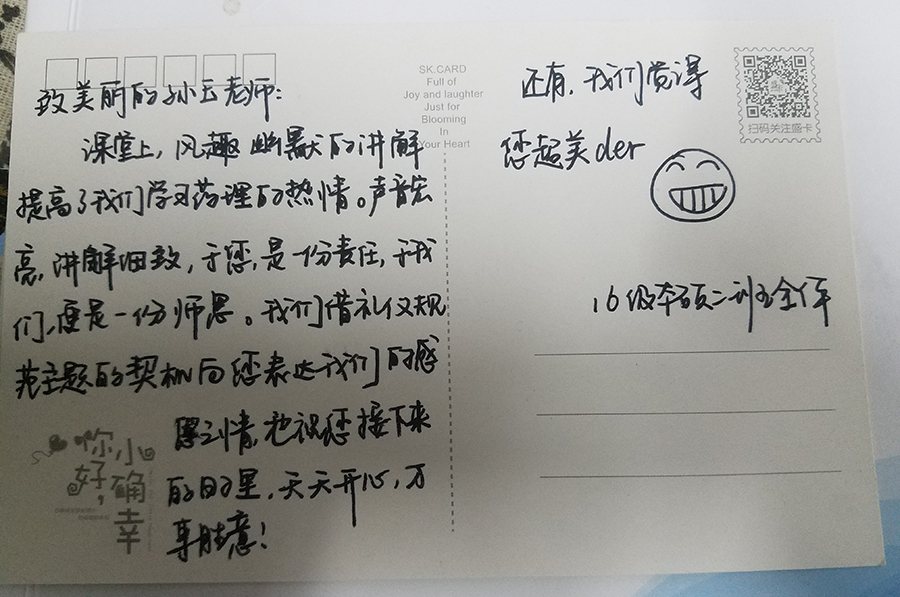 致美丽的孙玉老师:
课堂上,风趣幽默的讲解
提高了我们学习药理的热情。声音宏
亮,讲解细致,于您,是一份责任,于我
们,便是一份师恩。我们借礼仪规
范主题的契机向您表达我们的感
恩之情,也祝您接下来
的日子里,天天开心,万
事胜意!
你好,
小确幸
SK.CARD
Full of
Joy and laughter
Just for
Blooming
In
Your Heart
还有,我们觉得
您超美der
扫码关注盛卡
16级本硕二班全体